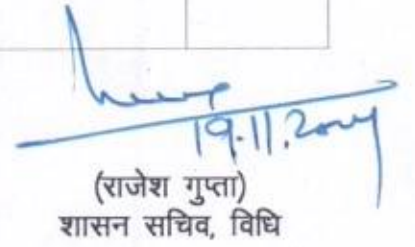 19.11.2024
(राजेश गुप्ता)
शासन सचिव, विधि